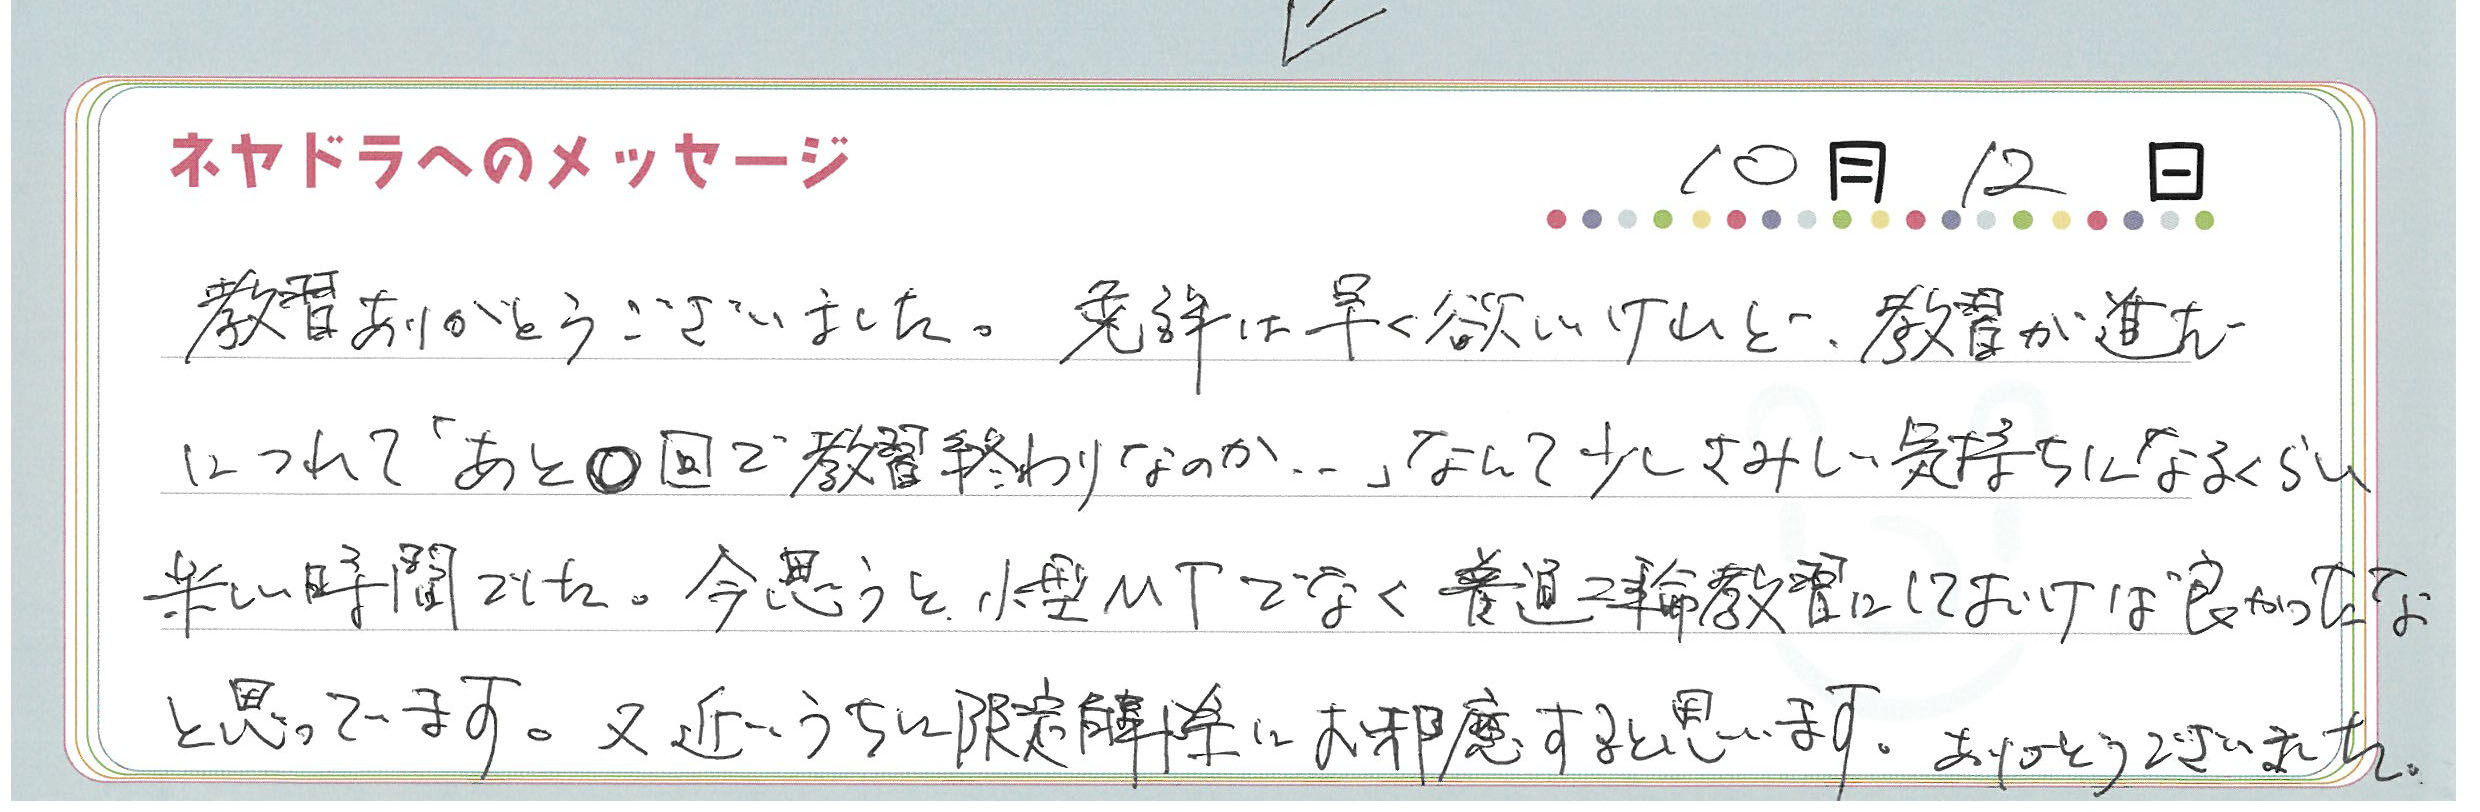 ネヤドラへのメッセージ
10月 12日
教習ありがとうございました。免許は早く欲しいけれど、教習が進む
につれて「あと〇回で教習終わりなのか…」なんて少しさみしい気持ちになるくらい
楽しい時間でした。今思うと、小型MTでなく普通二輪教習にしておけば良かったな
と思っています。又近いうちに限定解除にお邪魔すると思います。ありがとうございました。